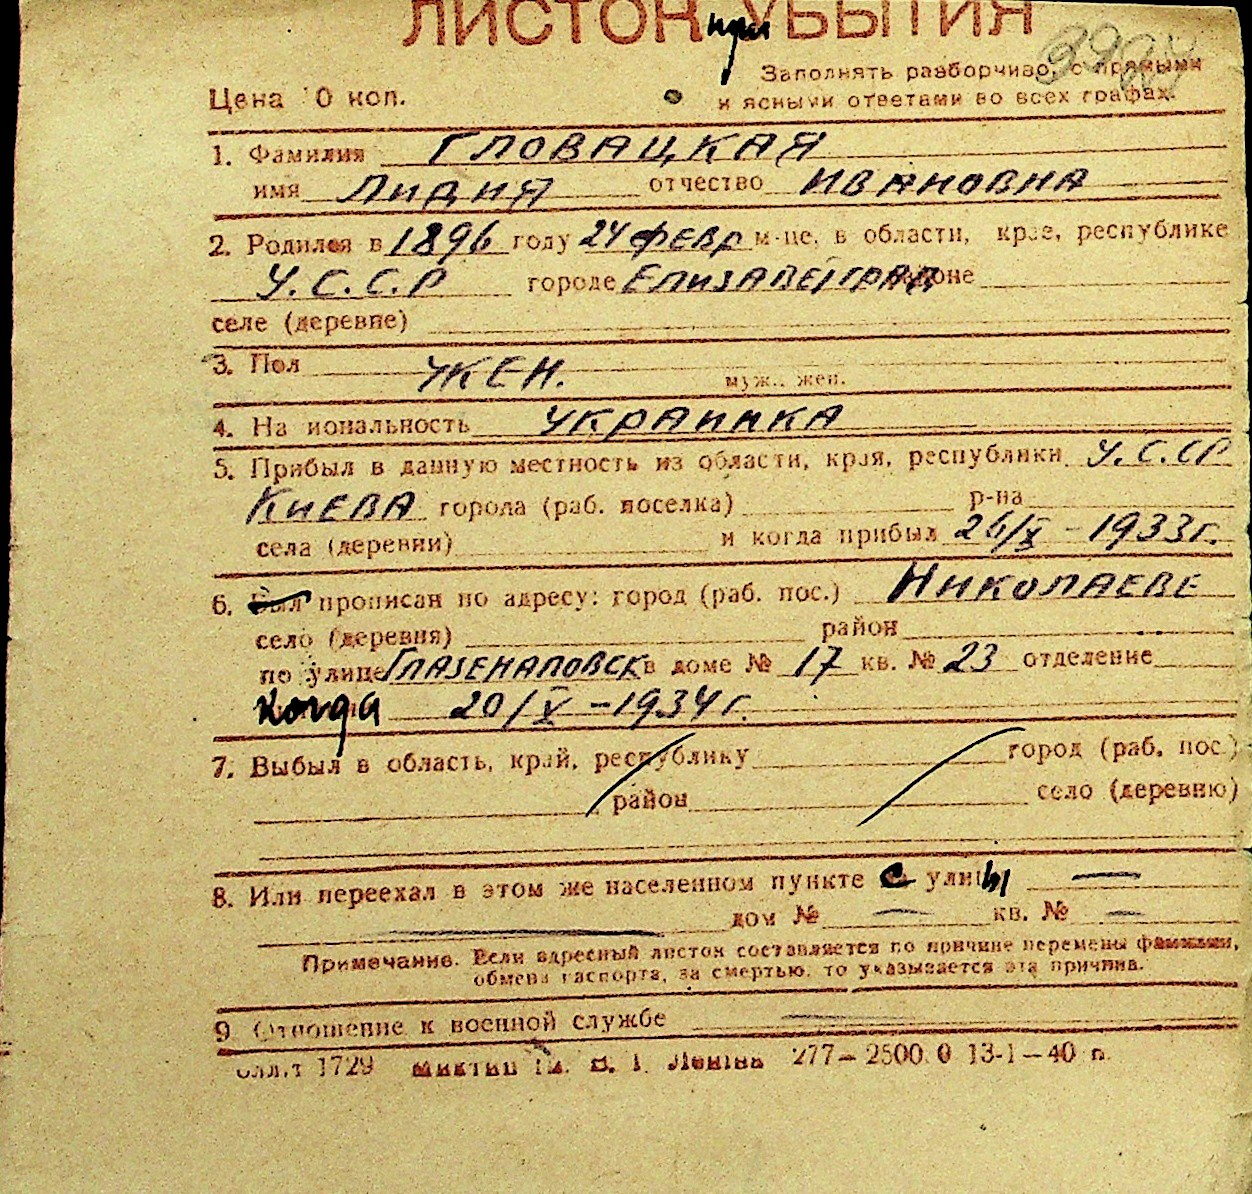 ЛИСТОК при УБЫТИЯ
Заполнять разборчиво, с прямыми
Цена 10 коп. и ясными ответами во всех графах.
1. Фамилия ГЛОВАЦКАЯ
имя ЛИДИЯ отчество ИВАНОВНА
2. Родился в 1896 году 24 ФЕВР м-це, в области, крае, республике
У.С.С.Р городе ЕЛИЗАВЕТГРАД районе
селе (деревне)
3. Пол ЖЕН. муж., жен.
4. Национальность УКРАИНКА
5. Прибыл в данную местность из области, края, республики У.С.СР
КИЕВА города (раб. поселка) р-на
села (деревни) и когда прибыл 26/X - 1933г.
6. Был прописан по адресу: город (раб. пос.) НИКОЛАЕВЕ
село (деревня) район
по улице ГЛАЗЕНАПОВСК в доме № 17 кв. № 23 отделение
Когда 20/X - 1934г.
7. Выбыл в область, край, республику город (раб. пос.)
район село (деревню)
8. Или переехал в этом же населенном пункте с улицы —
дом № — кв. № —
Примечание. Если адресный листок составляется по причине перемены фамилии,
обмена паспорта, за смертью, то указывается эта причина.
9. Отношение к военной службе
1729 Ленина 277—2500.0 13-1—40 п.